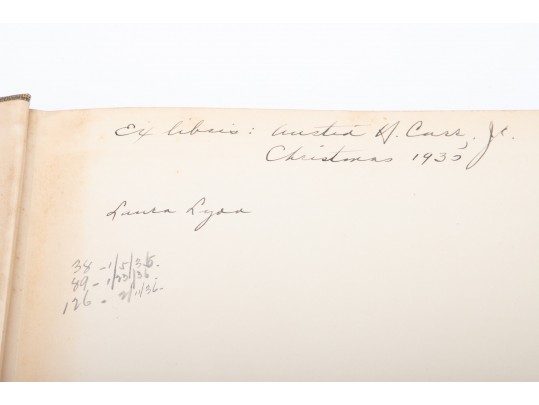 Ex libris: Austin H. Carr, Jr.
Christmas 1935
Laura Lydd
38 - 1/5/36.
89 - 1/23/36.
126 - 2/1/36.